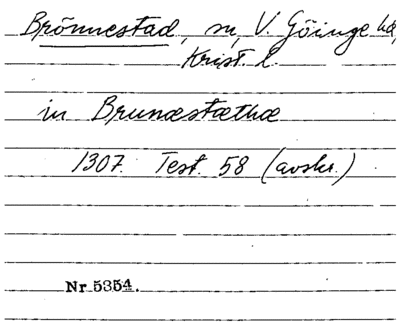 Brönnestad, sn, V. Göinge hd,
Krist. l.
in Brunæstæthæ
1307. Test. 58 (avskr.)
Nr 5354.